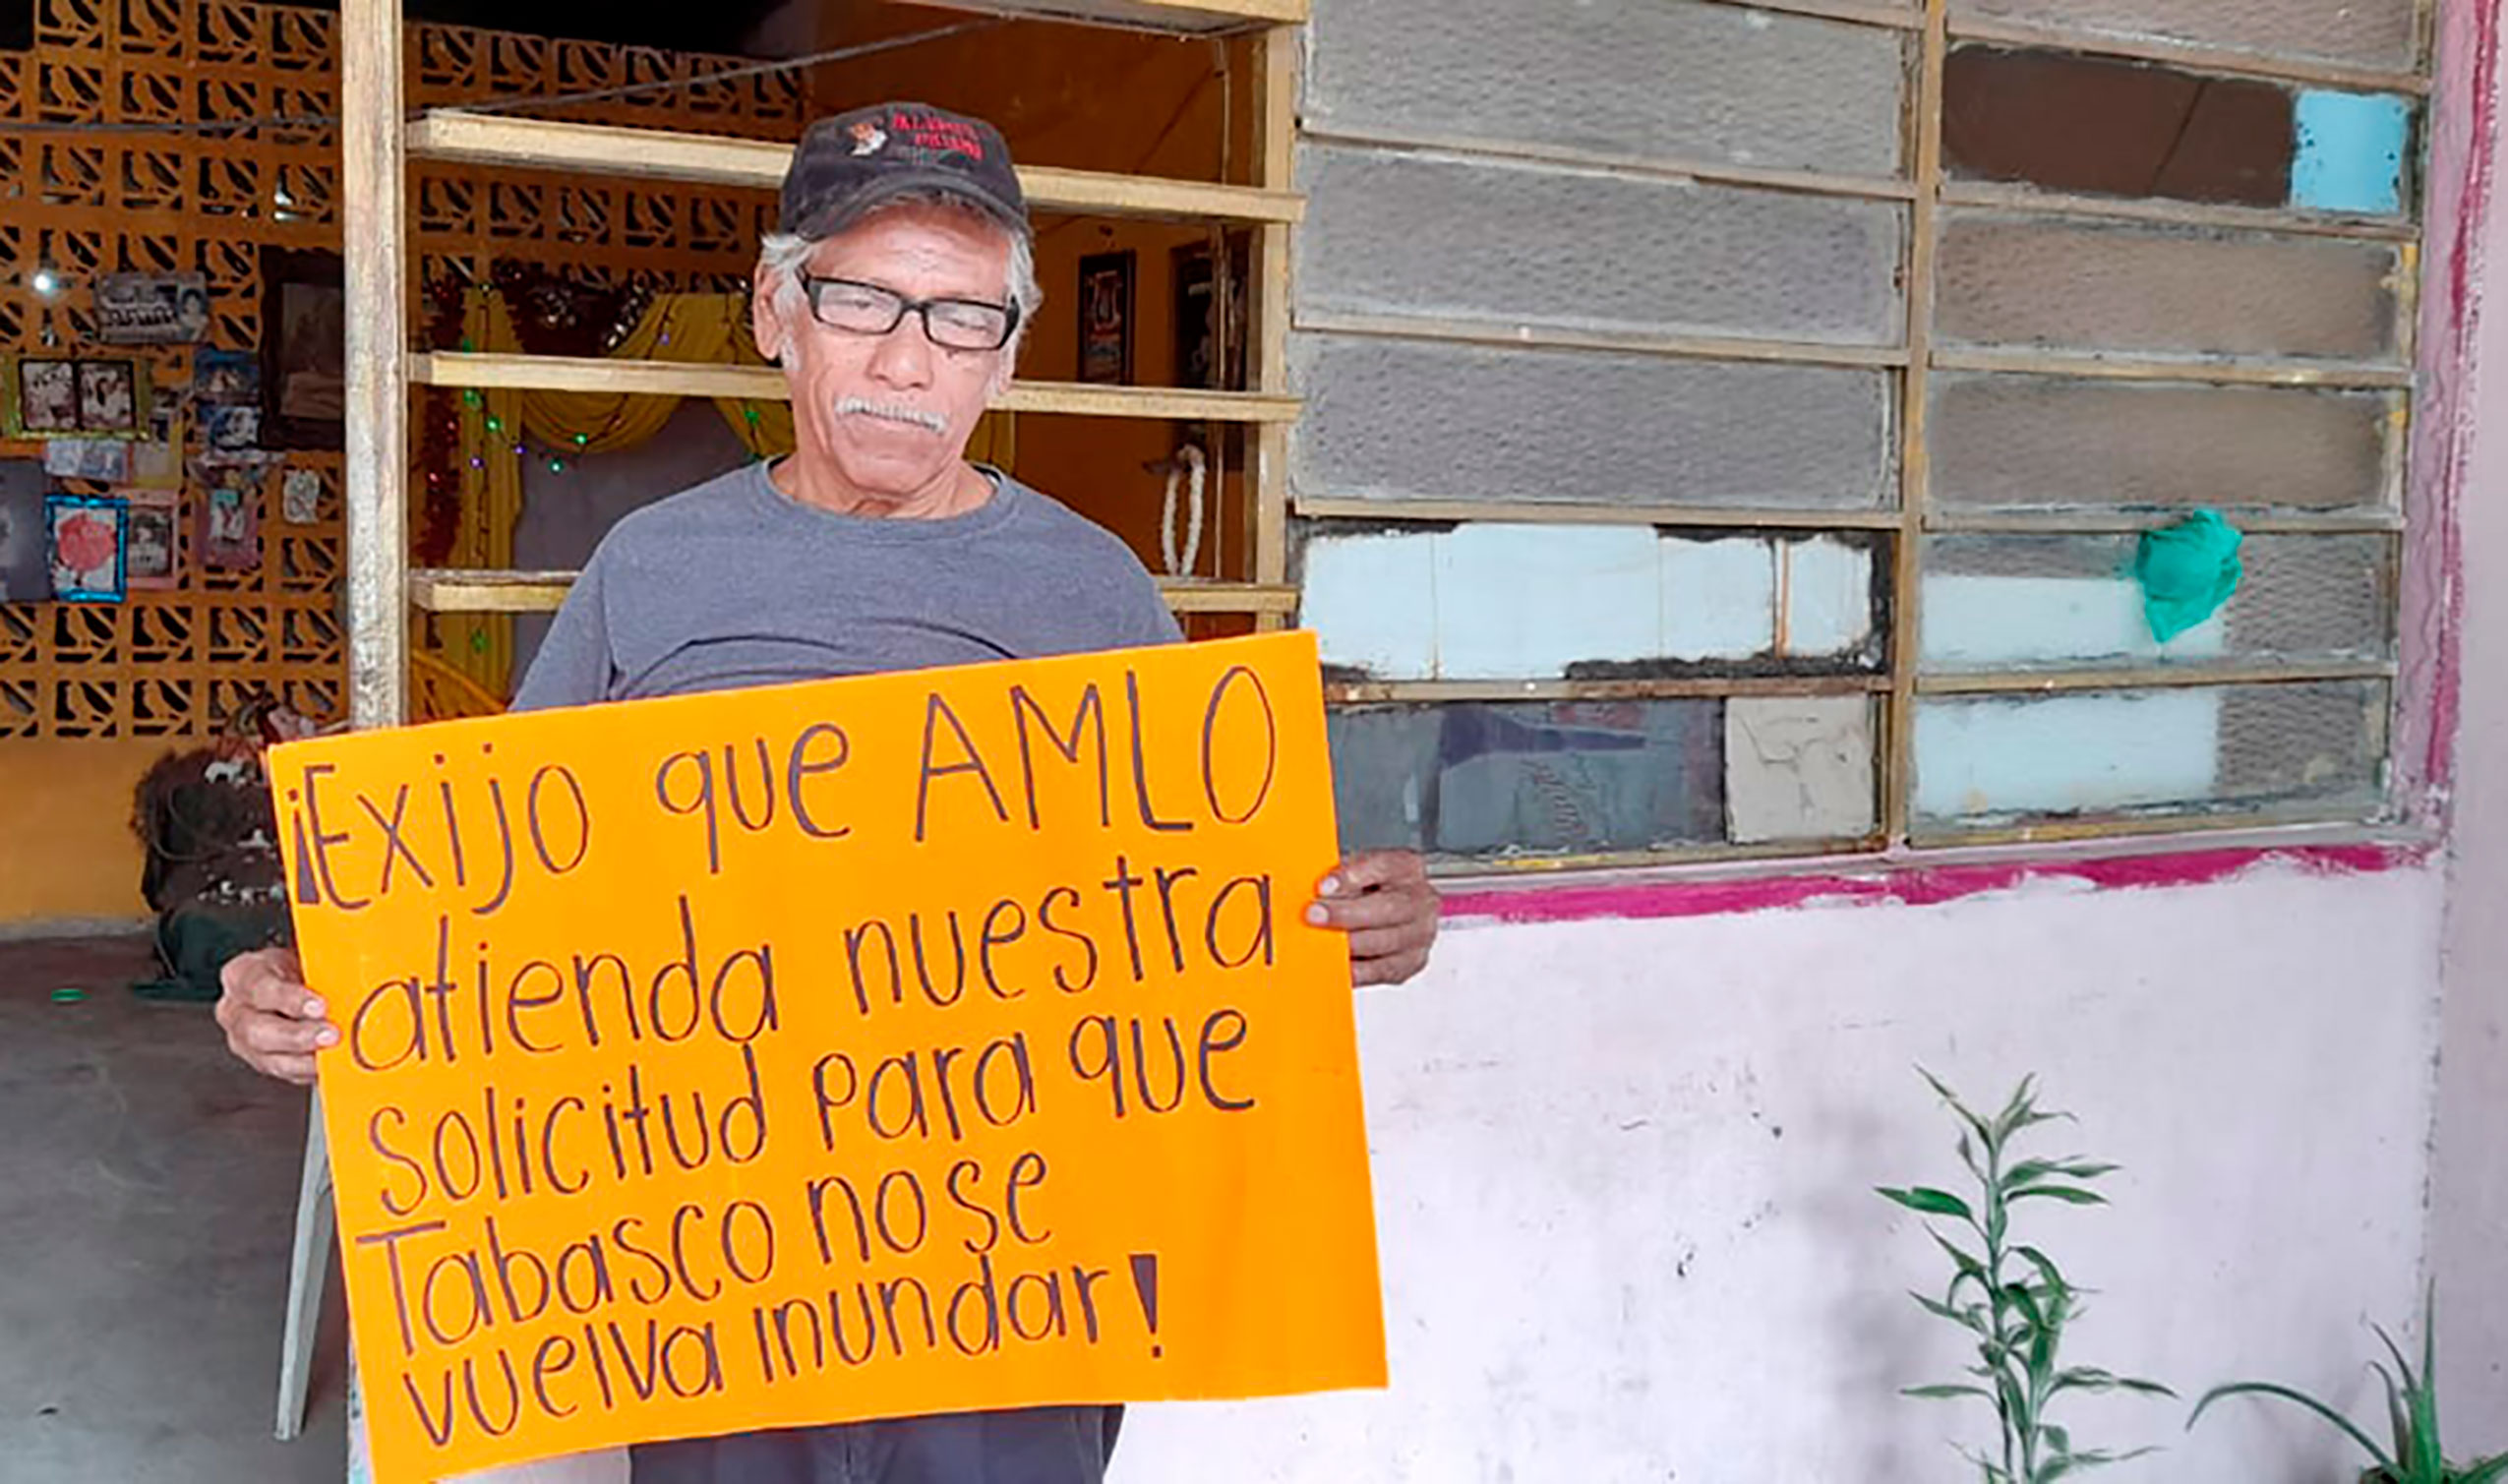 ¡Exijo que AMLO
atienda nuestra
solicitud para que
Tabasco no se
vuelva inundar!